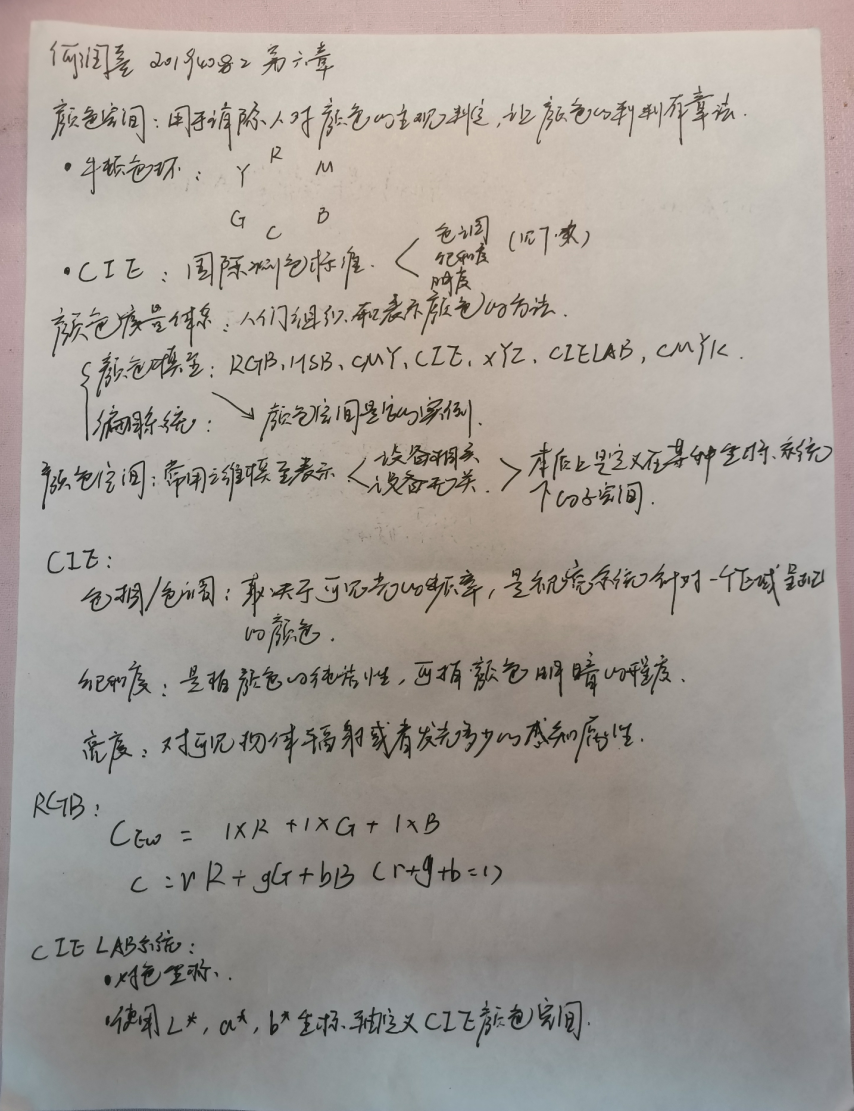 何润 2019408 2 第六章
颜色空间：用于消除人对颜色的主观判定，让颜色的判断有章法.
• 牛顿色环： Y R M
G C B
• CIE：国际测色标准. 色调 饱和度 明度 （见下文）
颜色度量体系：人们组织和表示颜色的方法.
颜色模型：RGB、HSB、CMY、CIE、XYZ、CIELAB、CMYK.
编目系统： → 颜色空间是它的实例.
颜色空间：常用三维模型表示 设备相关 设备无关. 本质上是定义在某种坐标系统
下的子空间.
CIE：
色相/色调：取决于可见光的频率，是视觉系统针对一个区域呈现
的颜色.
饱和度：是指颜色的纯洁性，可指颜色明暗的程度.
亮度：对可见物体辐射或者发光多少的感知属性.
RGB：
CEW = 1×R + 1×G + 1×B
C = rR + gG + bB （r+g+b=1）
CIE LAB系统：
• 对色坐标.
• 使用L*, a*, b* 坐标轴定义CIE颜色空间.